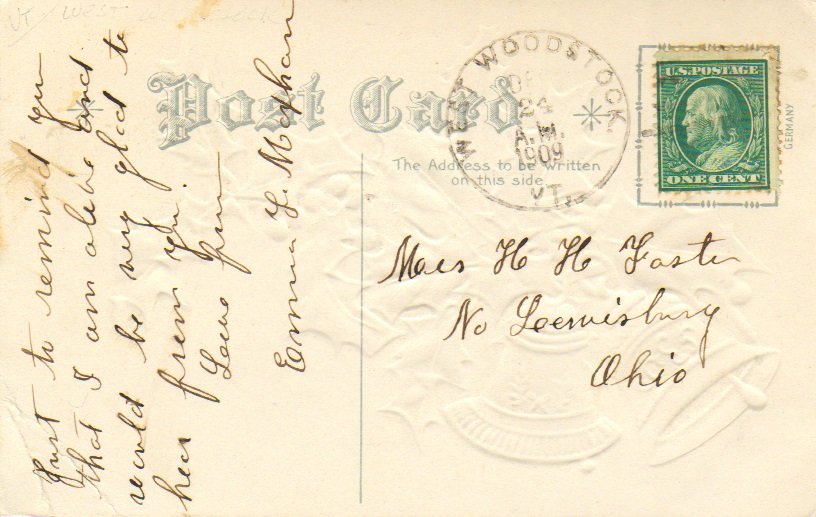 Vt West Woodstock
Post Card
The Address to be written
on this side
WEST WOODSTOCK.
24
A.M.
1909
VT.
U.S. POSTAGE
ONE CENT
GERMANY
H H Foster
No Lewisburg
Ohio
Just to remind you
that I am alive and
would be very glad to
hear from you.
Love from
Emma L.